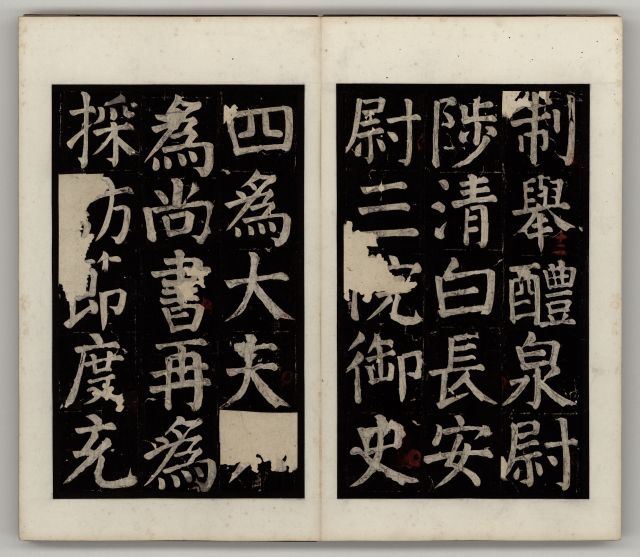 制舉醴泉尉
陟清白長安
尉三院御史
四為大夫
為尚書再為
採訪節度充